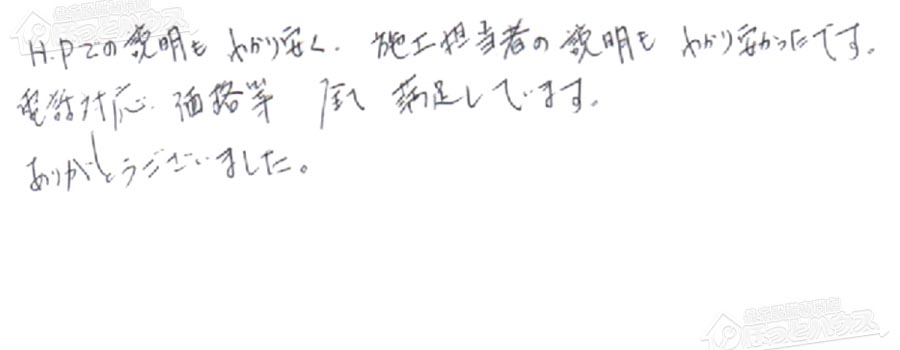 H.Pでの説明もわかり安く、施工担当者の説明もわかり安かったです。
電話対応、価格等 全て満足しています。
ありがとうございました。
ほっとハウス